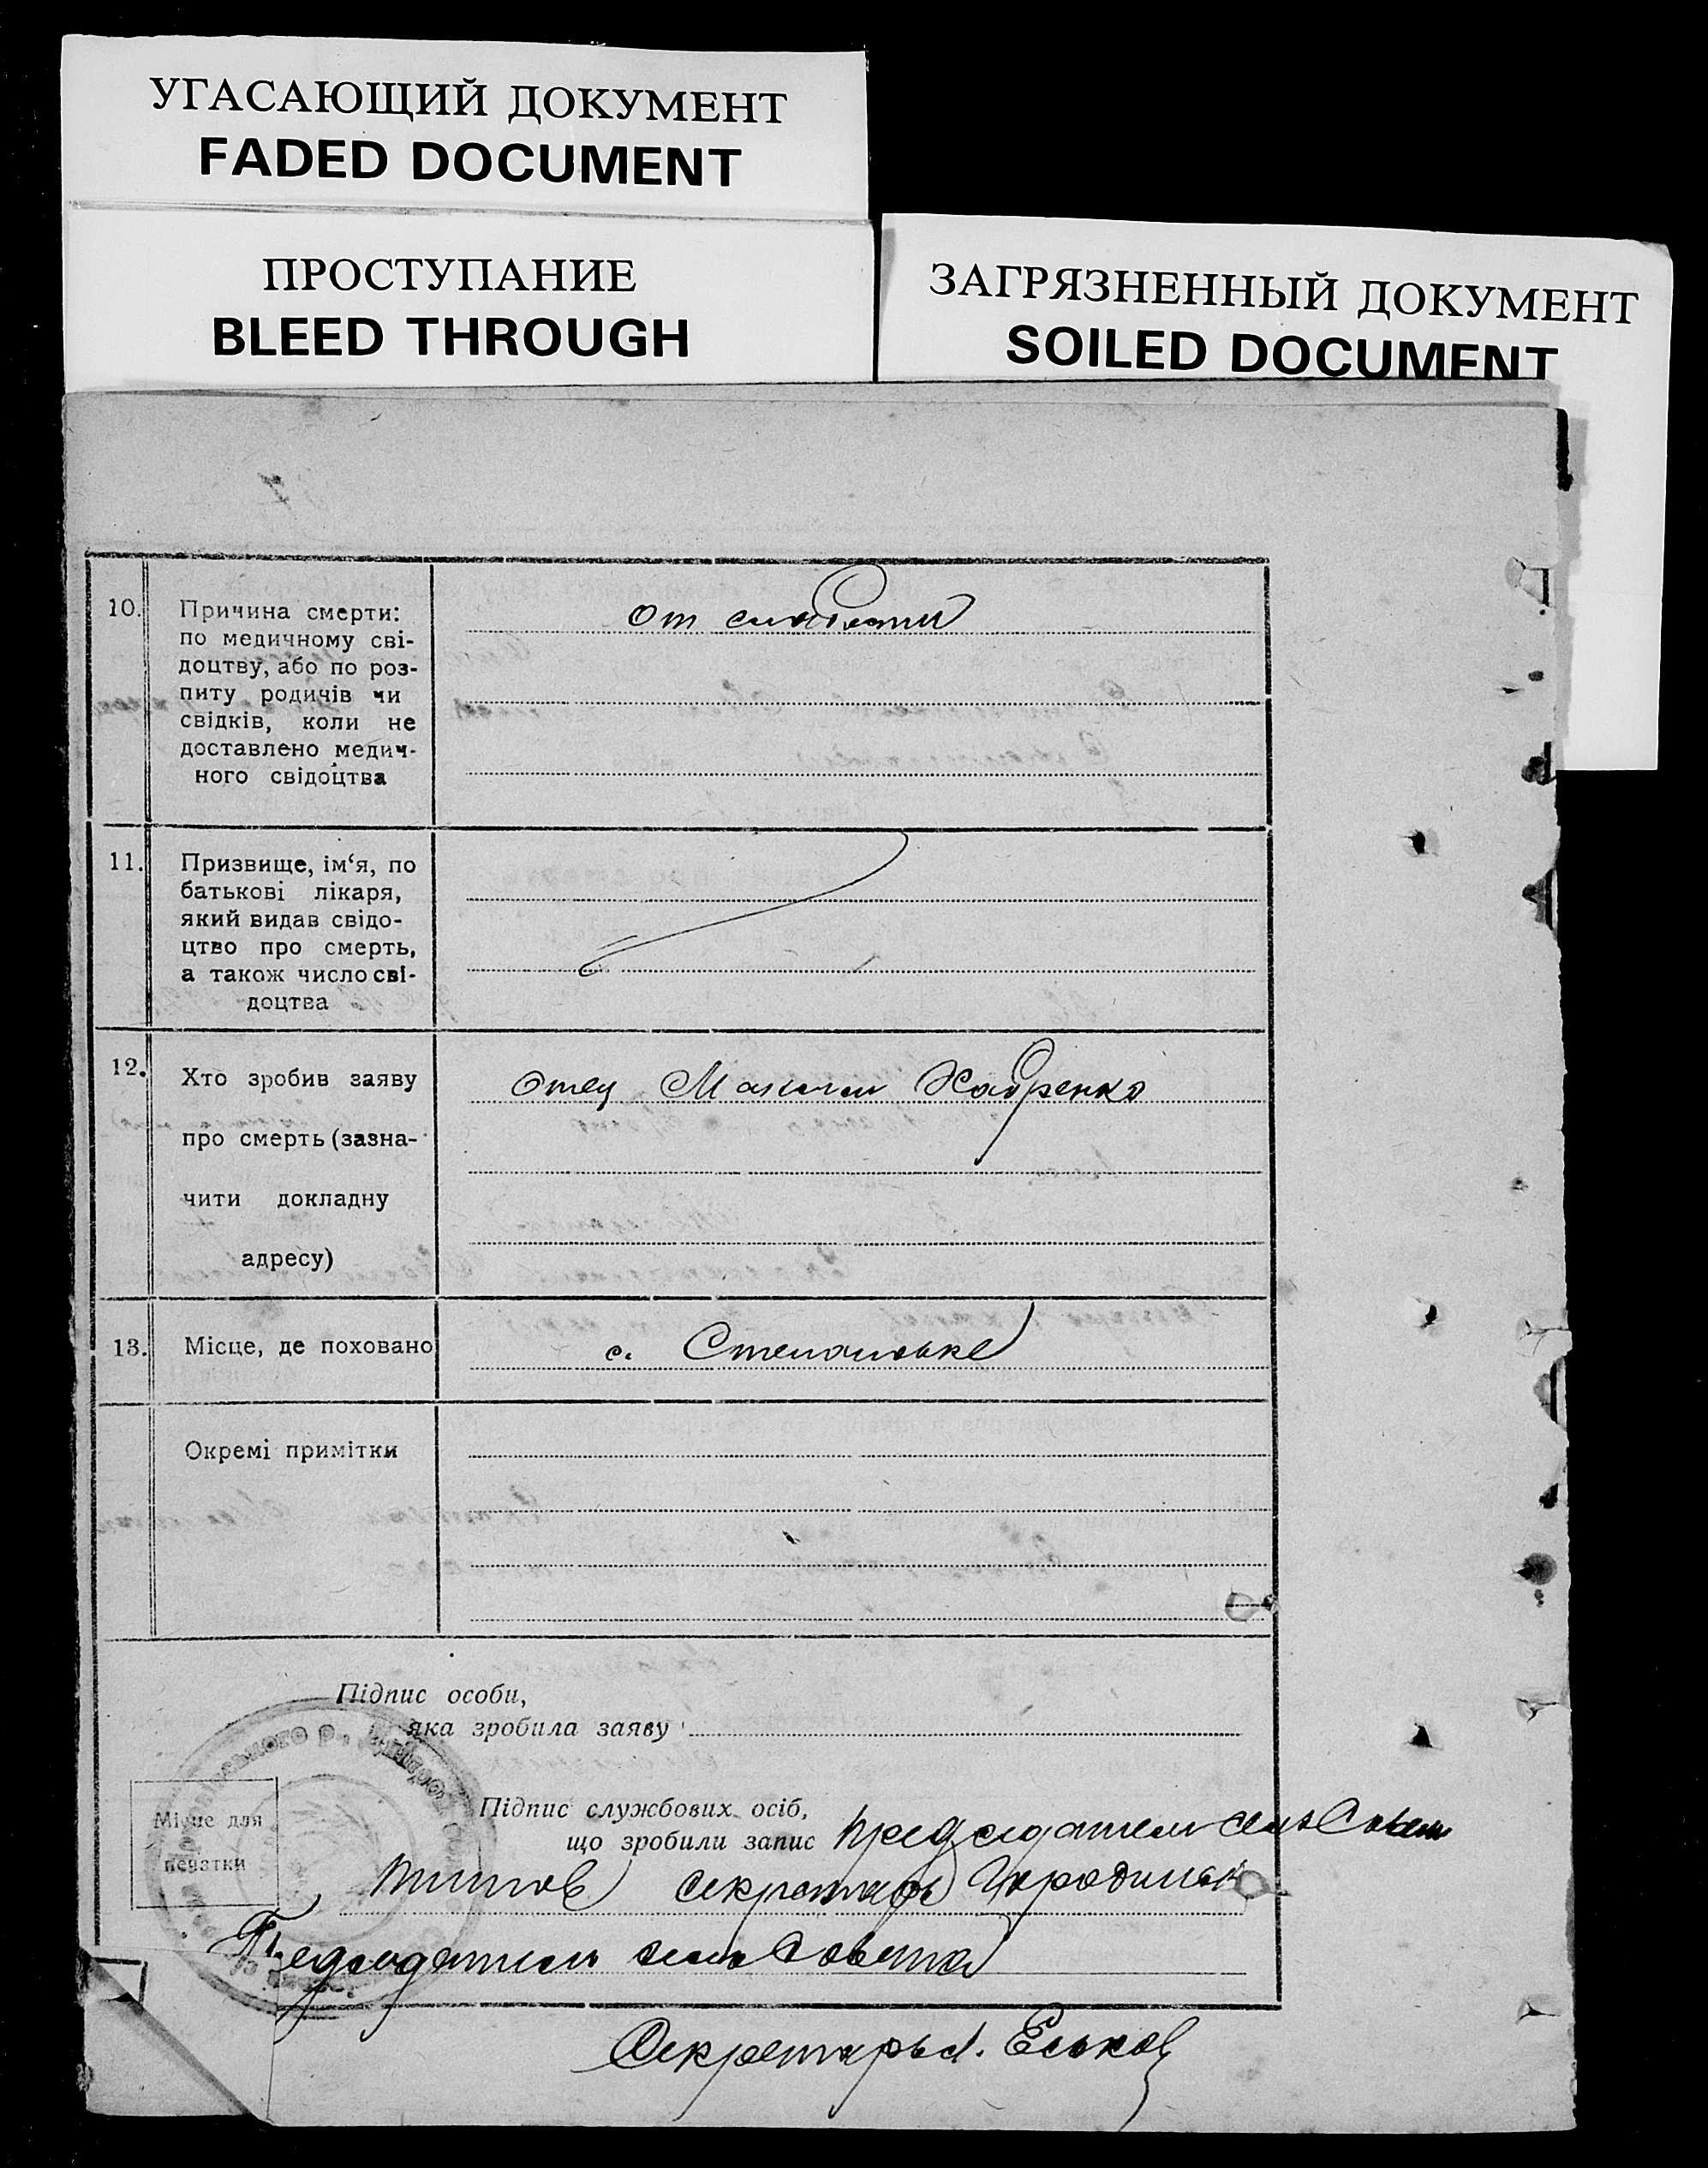 УГАСАЮЩИЙ ДОКУМЕНТ
FADED DOCUMENT
ПРОСТУПАНИЕ
BLEED THROUGH
ЗАГРЯЗНЕННЫЙ ДОКУМЕНТ
SOILED DOCUMENT
10. Причина смерти: от слабости
по медичному сві-
доцтву, або по роз-
питу родичів чи
свідків, коли не
доставлено медич-
ного свідоцтва
11. Призвище, ім‘я, по
батькові лікаря,
який видав свідо-
цтво про смерть,
а також число сві-
доцтва
12. Хто зробив заяву Отец Максим
про смерть (зазна-
чити докладну
адресу)
13. Місце, де поховано с.
Окремі примітки
Підпис особи,
яка зробила заяву
Підпис службових осіб,
що зробили запис председатель
Місце для
печатки
Титов секретарь
Председатель сельсовета
Секретарь Еськов